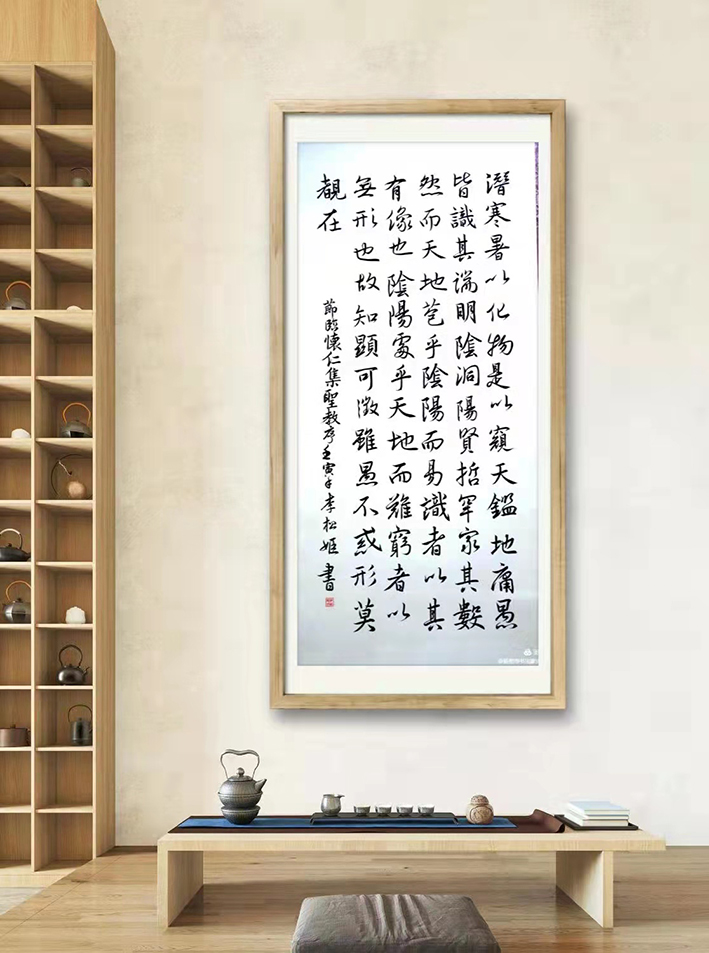 潛寒暑以化物是以窺天鑑地庸愚
皆識其端明陰洞陽賢哲罕窮其數
然而天地苞乎陰陽而易識者以其
有像也陰陽處乎天地而難窮者以
無形也故知顯可徵雖愚不惑形莫
覩在
節臨懷仁集聖教序壬寅年李松姬書